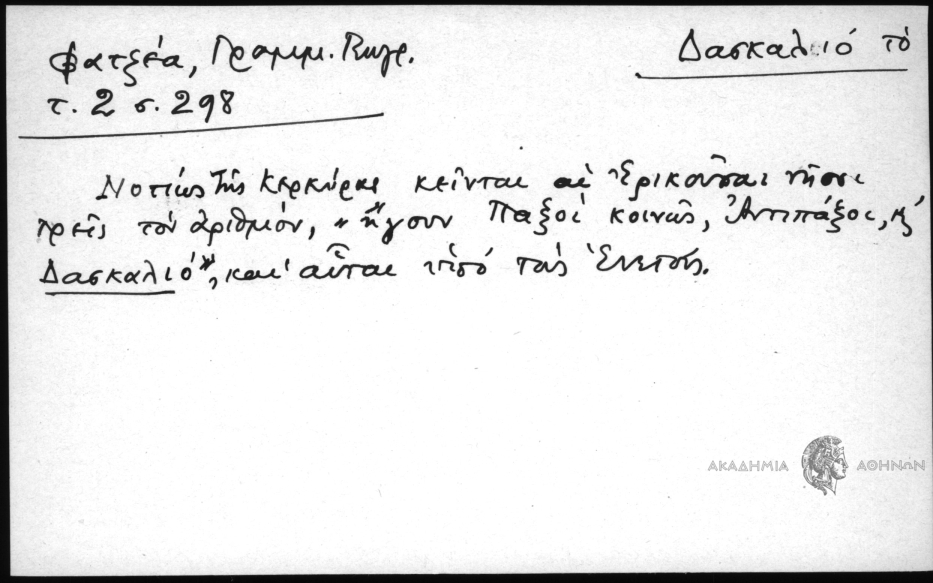 Φατζέα, Γραμμ. Γεωγρ.
Δασκαλιό τό
τ. 2 σ. 298
Νοτίως τῆς Κερκύρας κεῖνται αἱ Ἐρικοῦσαι νῆσοι
τρεῖς τόν ἀριθμόν, "ἤγουν Παξοί κοινῶς, Ἀντιπάξοι, κ'
Δασκαλιό", και αὗται ὑπό τούς Ἑνετούς.
ΑΚΑΔΗΜΙΑ ΑΘΗΝΩΝ